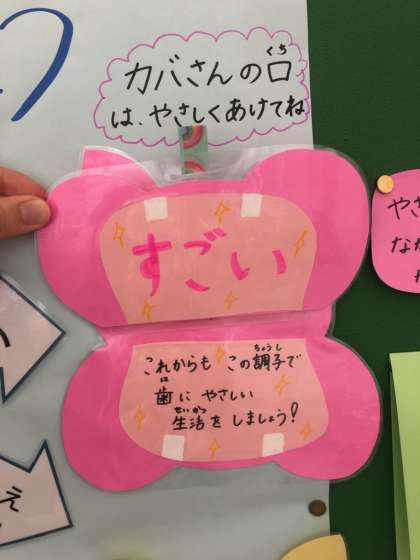 カバさんの口
くち
は、やさしくあけてね
すごい
これからも この調子で
ちょうし
歯に やさしい
は
生活を しましょう!
せいかつ
やさ
な
え